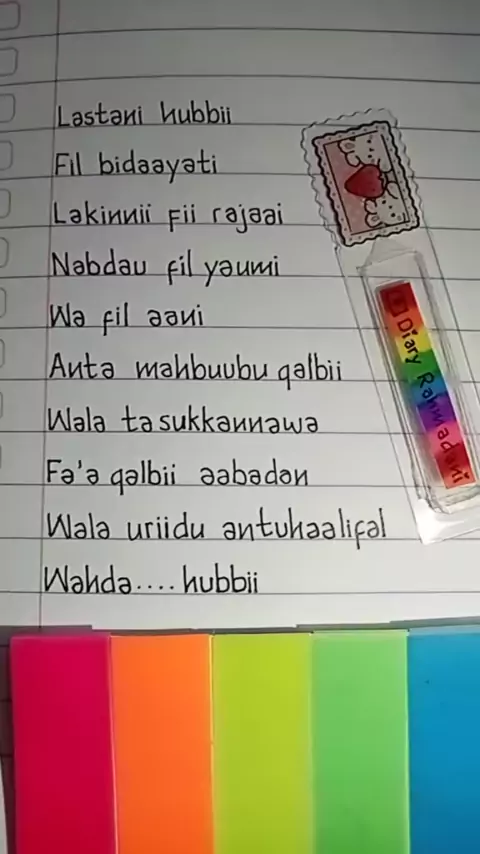 Lastani hubbii
Fil bidaayati
Lakinnii fii rajaai
Nabdau fil yaumi
Wa fil aani
Anta mahbuubu qalbii
Wala ta sukkannawa
Fa'a qalbii aabadan
Wala uriidu antuhaalifal
Wahda.... hubbii
Diary Rahmadani